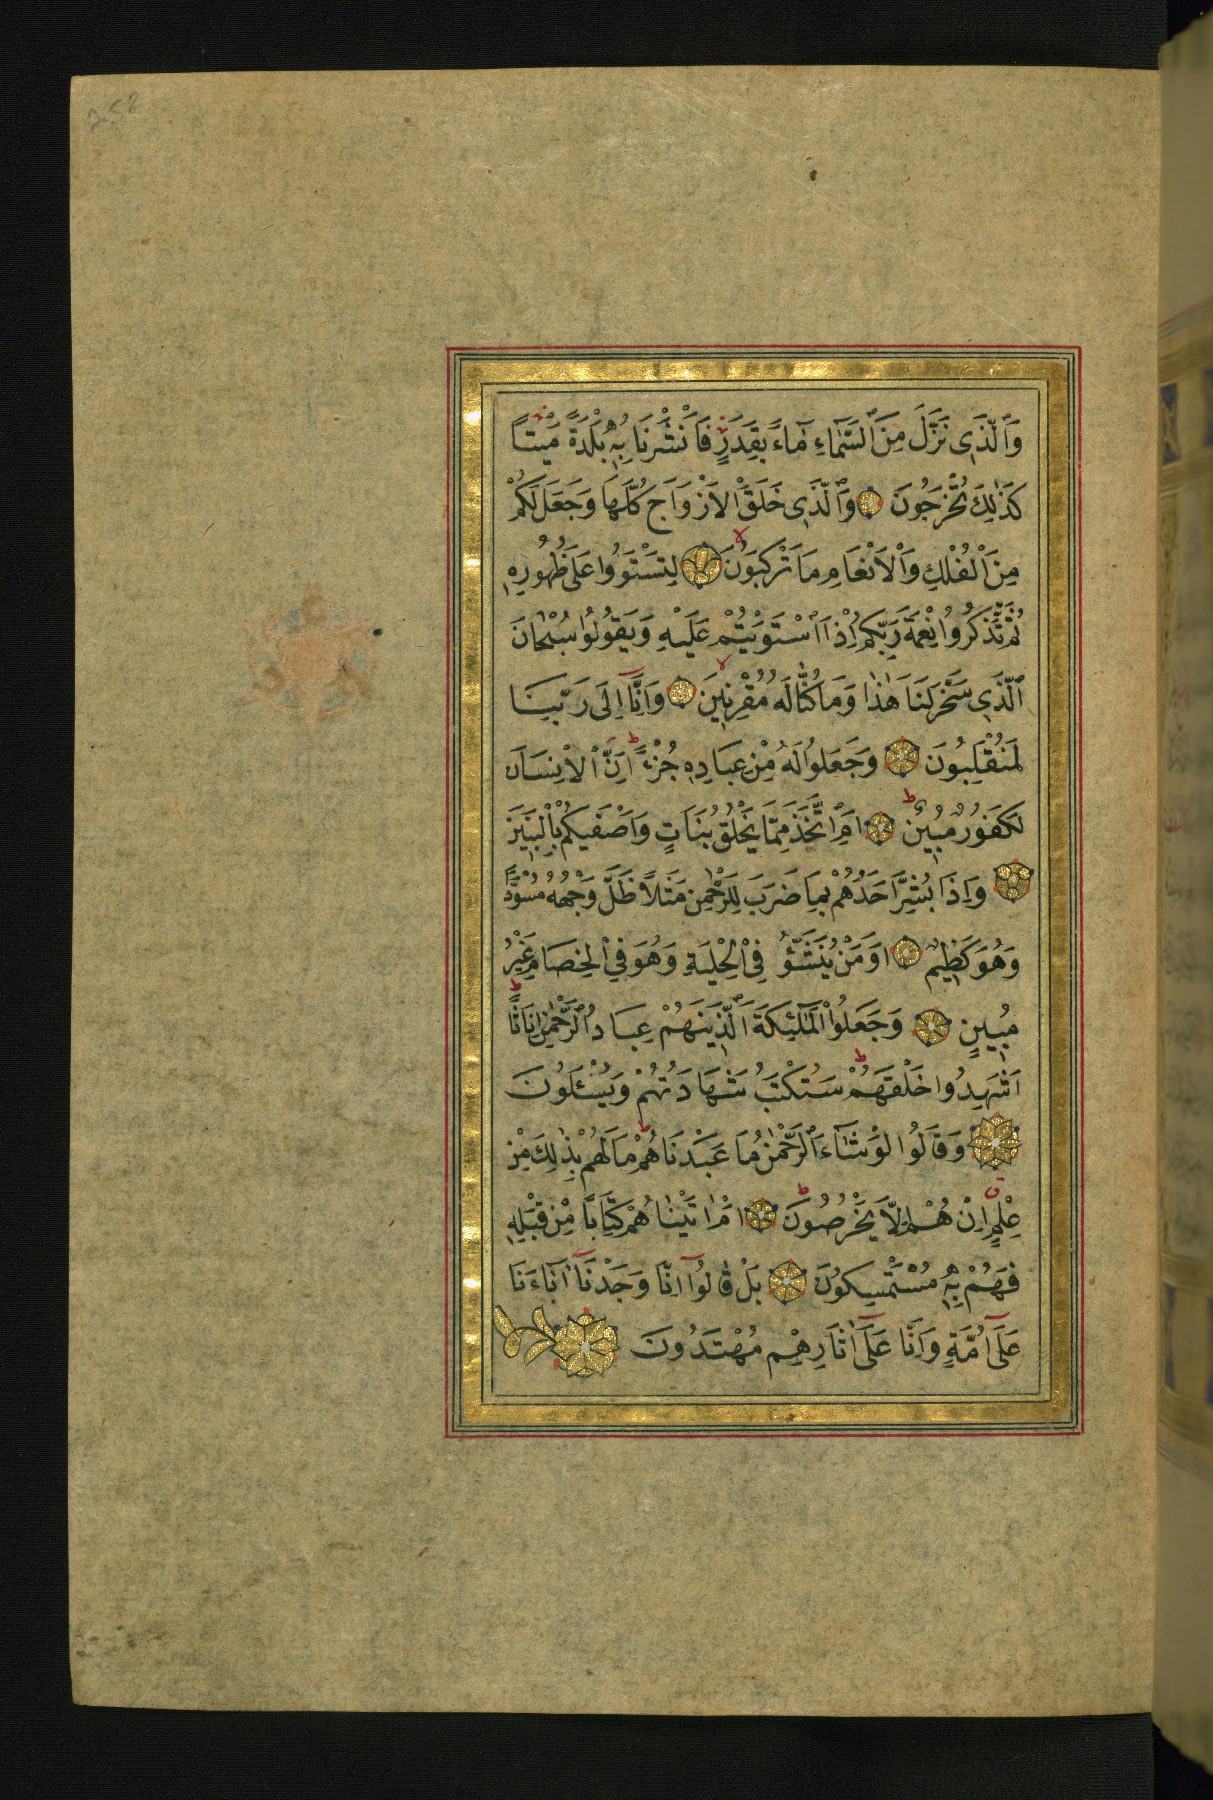 258
وَالَّذِى نَزَّلَ مِنَ السَّمَاءِ مَاءً بِقَدَرٍ فَاَنْشَرْنَا بِهِ بَلْدَةً مَيْتًا
كَذٰلِكَ تُخْرَجُونَ وَالَّذِى خَلَقَ الْاَزْوَاجَ كُلَّهَا وَجَعَلَ لَكُمْ
مِنَ الْفُلْكِ وَالْاَنْعَامِ مَا تَرْكَبُونَ لِتَسْتَوُوا عَلٰى ظُهُورِهِ
ثُمَّ تَذْكُرُوا نِعْمَةَ رَبِّكُمْ اِذَا اسْتَوَيْتُمْ عَلَيْهِ وَيَقُولُوا سُبْحَانَ
الَّذِى سَخَّرَ لَنَا هٰذَا وَمَا كُنَّا لَهُ مُقْرِنِينَ وَاِنَّا اِلٰى رَبِّنَا
لَمُنْقَلِبُونَ وَجَعَلُوا لَهُ مِنْ عِبَادِهِ جُزْءًا اِنَّ الْاِنْسَانَ
لَكَفُورٌ مُبِينٌ اَمِ اتَّخَذَ مِمَّا يَخْلُقُ بَنَاتٍ وَاَصْفٰيكُمْ بِالْبَنِينَ
وَاِذَا بُشِّرَ اَحَدُهُمْ بِمَا ضَرَبَ لِلرَّحْمٰنِ مَثَلًا ظَلَّ وَجْهُهُ مُسْوَدًّا
وَهُوَ كَظِيمٌ اَوَمَنْ يُنَشَّؤُ فِى الْحِلْيَةِ وَهُوَ فِى الْخِصَامِ غَيْرُ
مُبِينٍ وَجَعَلُوا الْمَلٰئِكَةَ الَّذِينَ هُمْ عِبَادُ الرَّحْمٰنِ اِنَاثًا
اَشَهِدُوا خَلْقَهُمْ سَتُكْتَبُ شَهَادَتُهُمْ وَيُسْئَلُونَ
وَقَالُوا لَوْ شَاءَ الرَّحْمٰنُ مَا عَبَدْنَاهُمْ مَا لَهُمْ بِذٰلِكَ مِنْ
عِلْمٍ اِنْ هُمْ اِلَّا يَخْرُصُونَ اَمْ اٰتَيْنَاهُمْ كِتَابًا مِنْ قَبْلِهِ
فَهُمْ بِهِ مُسْتَمْسِكُونَ بَلْ قَالُوا اِنَّا وَجَدْنَا اٰبَاءَنَا
عَلٰى اُمَّةٍ وَاِنَّا عَلٰى اٰثَارِهِمْ مُهْتَدُونَ